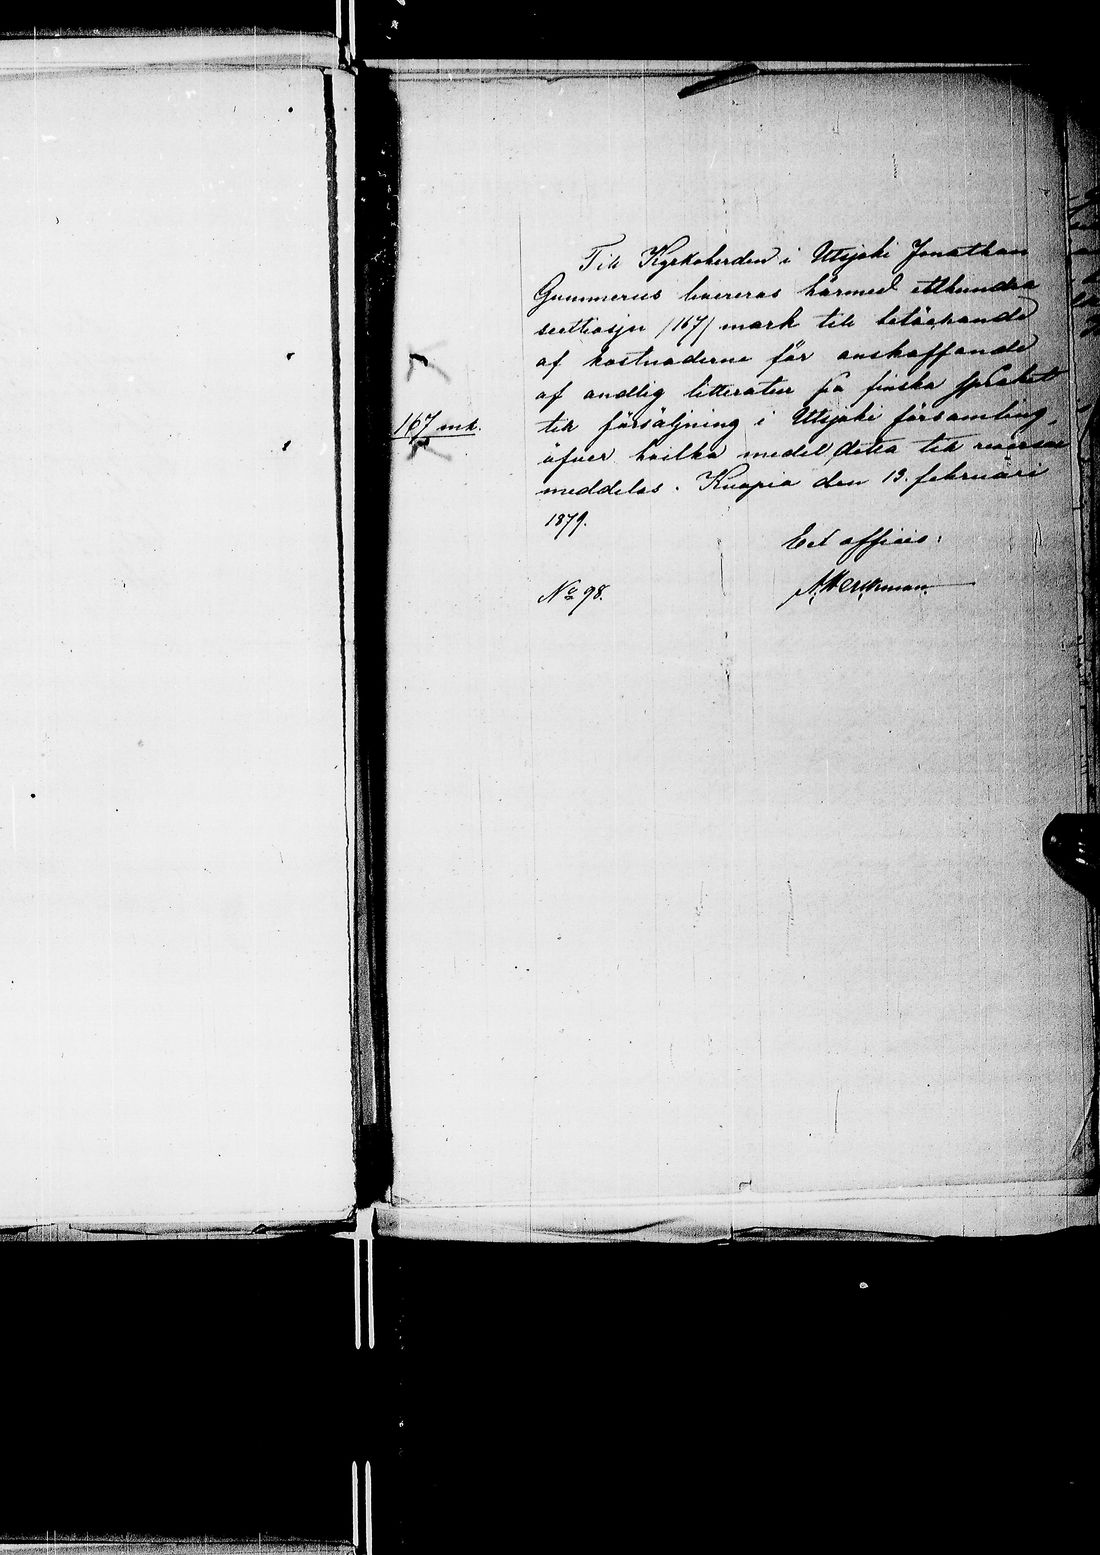 Till Kyrkoherden i Utsjoki Jonathan
Gummerus levereras härmed etthundra
sextiosju /167/ mark till betäckande
af kostnaderne för anskaffande
af andlig litteratur på finska språket
167 mk.
till försäljning i Utsjoki församling,
öfver hvilka medel detta till reversal
meddelas. Kuopio den 13. februari
1879.
Ex officio:
No 98.